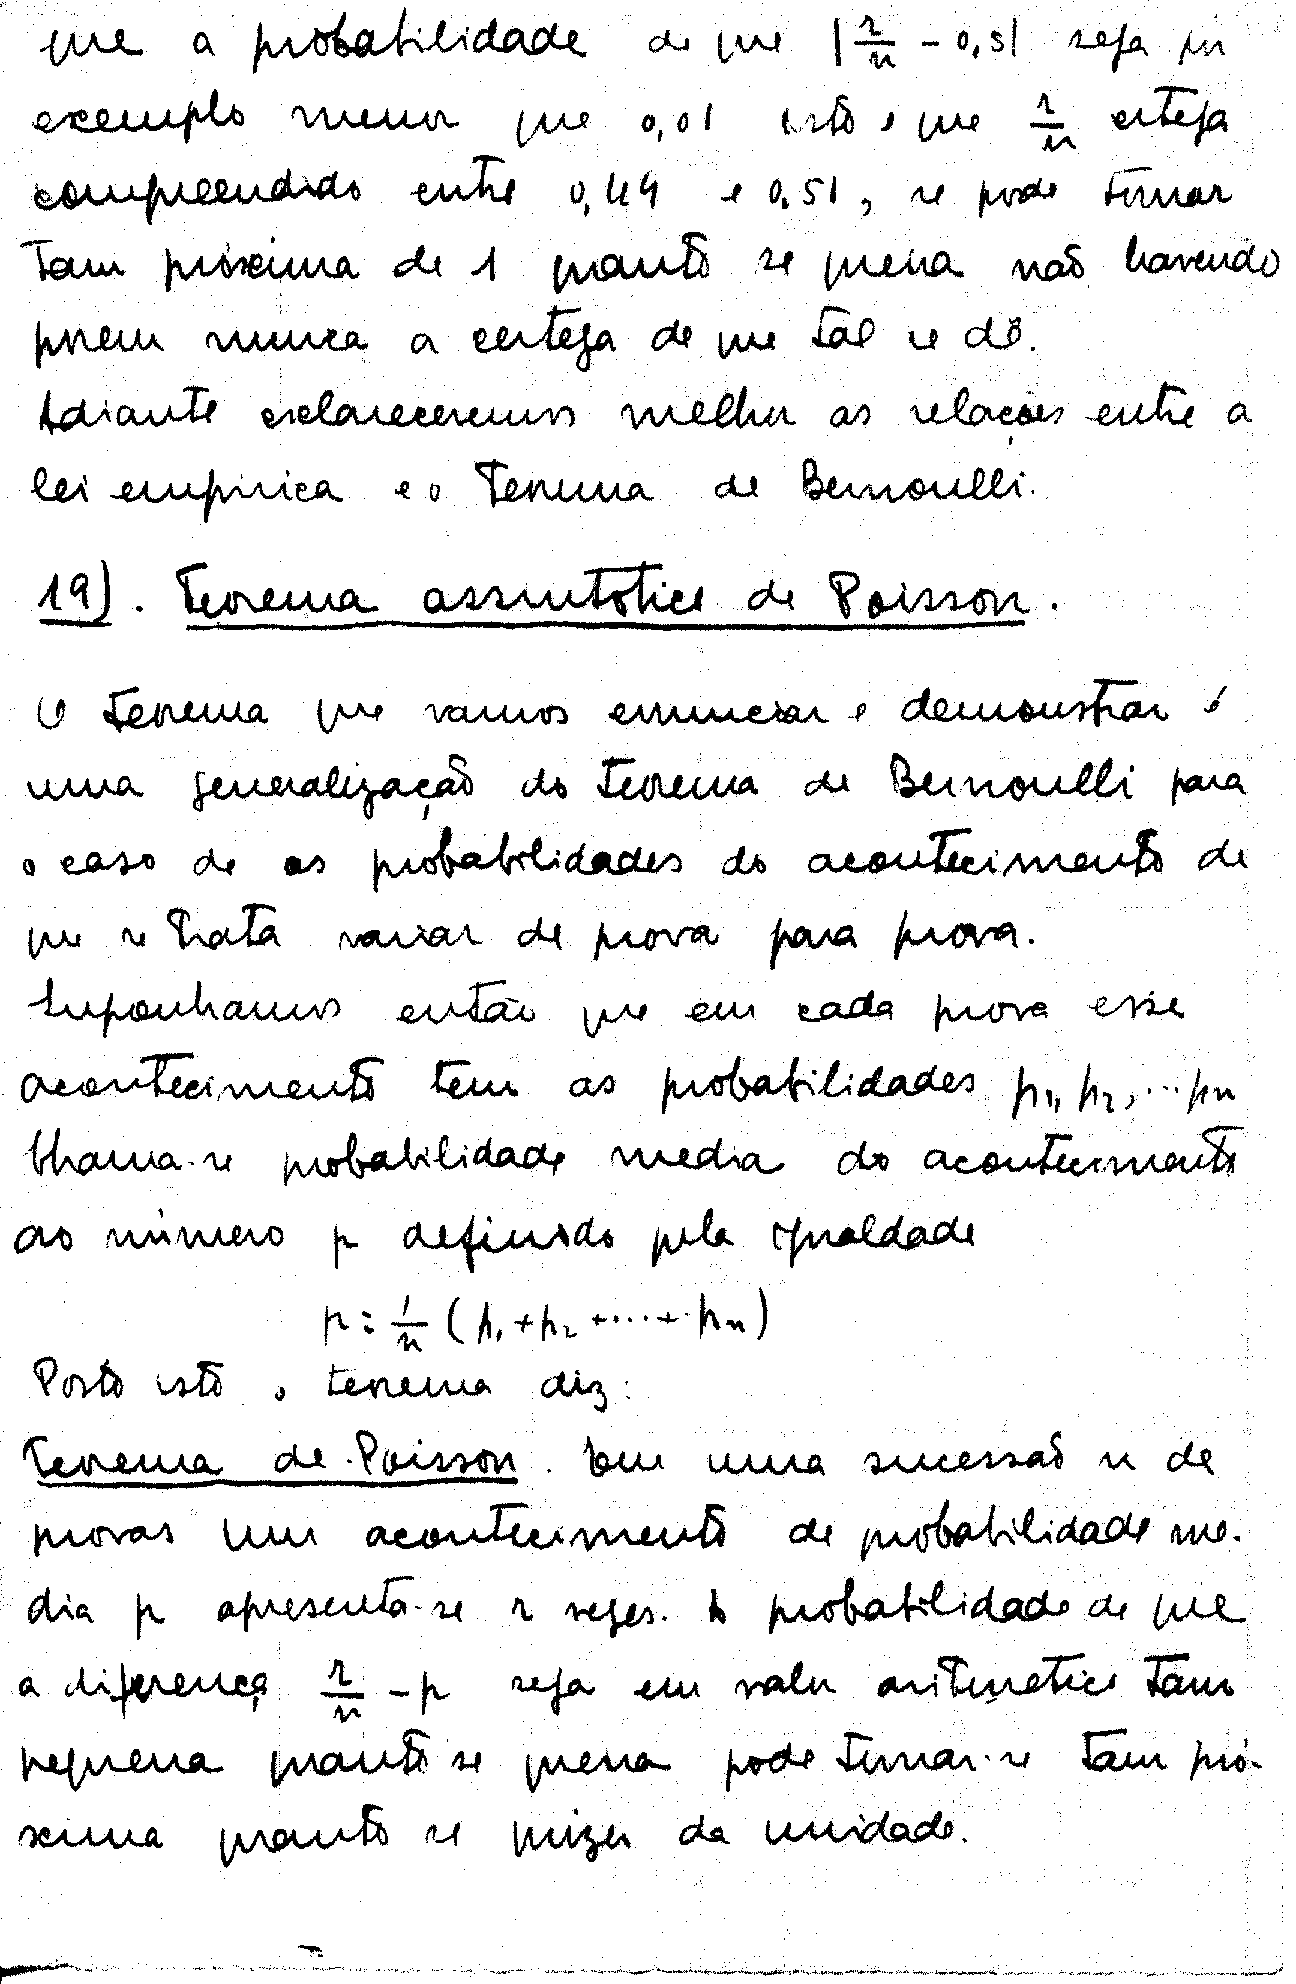 que a probabilidade de que |r/n - 0,5| seja por
exemplo menor que 0,01 isto é que r/n esteja
compreendido entre 0,49 e 0,51, se pode tornar
tam próxima de 1 quanto se queira não havendo
porem nunca a certeza de que tal se dê.
Adiante esclareceremos melhor as relações entre a
lei empirica e o Teorema de Bernoulli.
19). Teorema assintotico de Poisson.
O teorema que vamos enunciar e demonstrar é
uma generalização do teorema de Bernoulli para
o caso de as probabilidades do acontecimento de
que se trata variar de prova para prova.
Suponhamos então que em cada prova esse
acontecimento tem as probabilidades p1, p2, ... pn
Chama-se probabilidade media do acontecimento
ao número p definido pela igualdade
p = 1/n (p1 + p2 + .... + pn)
Posto isto o teorema diz:
Teorema de Poisson. Em uma sucessão n de
provas um acontecimento de probabilidade me-
dia p apresenta-se r vezes. A probabilidade de que
a diferença r/n - p seja em valor aritmetico tam
pequena quanto se queira pode tornar-se tam pró-
xima quanto se quizer da unidade.